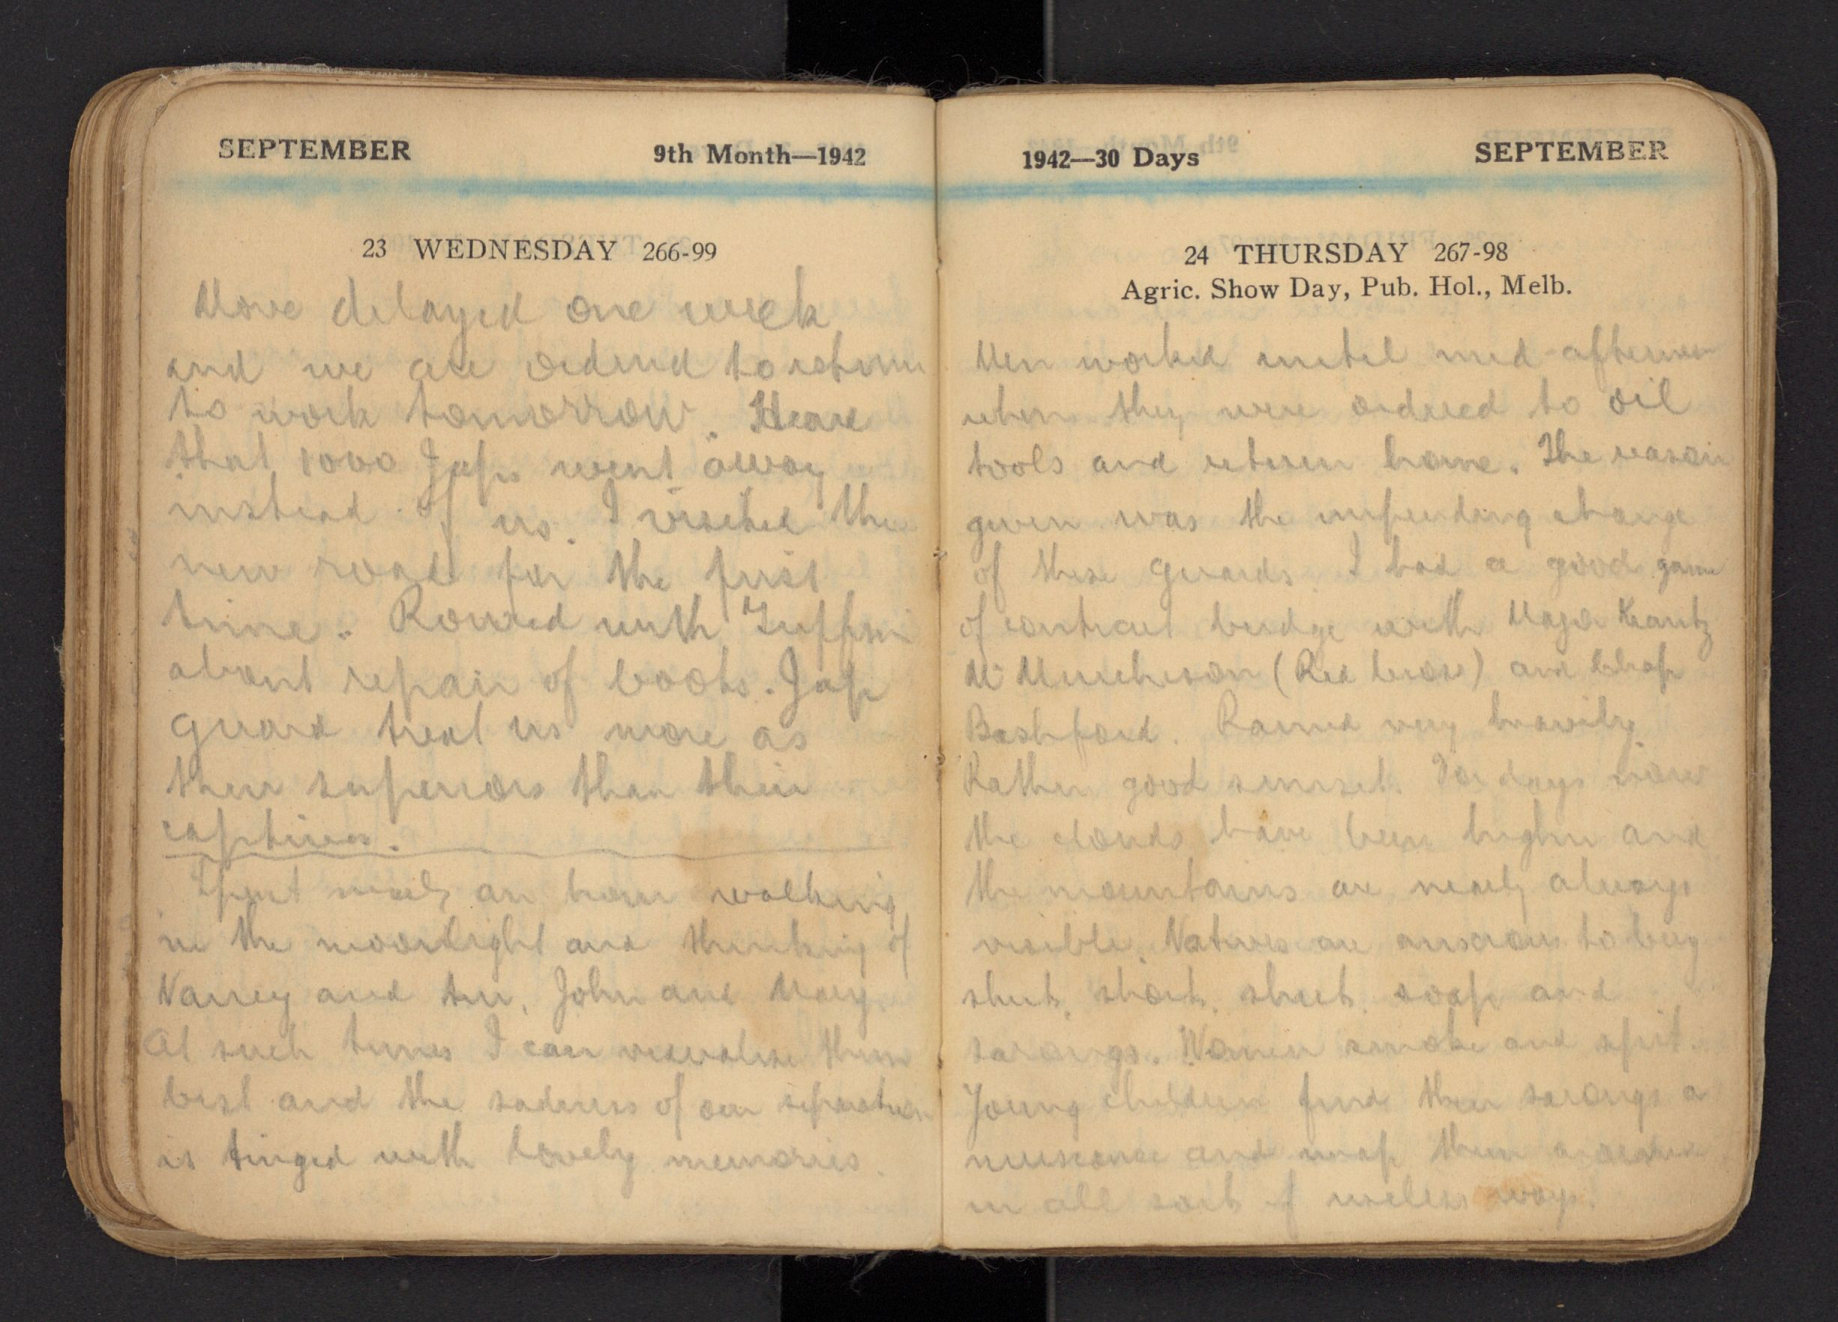 SEPTEMBER 9th Month—1942
23 WEDNESDAY 266-99
Move delayed one week
and we are ordered to return
to work tomorrow. Hear
that 1000 Japs went away
instead of us. I visited the
new road for the first
time. Rowed with
about repair of boots. Jap
guard treat us more as
their superiors than their
captives.
Spent nearly an hour walking
in the moonlight and thinking of
Nancy and John and Mary
At such times I can visualise them
best and the sadness of our separation
is tinged with lovely memories.
1942—30 Days SEPTEMBER
24 THURSDAY 267-98
Agric. Show Day, Pub. Hol., Melb.
Men worked until mid-afternoon
when they were ordered to oil
tools and return home. The reason
given was the impending change
of these guards. I had a good game
of contract bridge with Major Krantz
Mr Murchison (Red Cross) and
Bashford. Rained very heavily.
Rather good sunset. For days now
the clouds have been higher and
the mountains are nearly always
visible. Natives are anxious to buy
shirts, shorts, sheets, soap and
sarongs. Women smoke and spit.
Young children find their sarongs a
nuisance and wrap them around
in all sorts of useless ways.